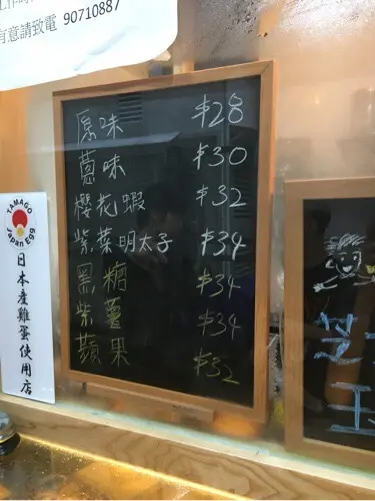 有意請致電 90710887
原味 $28
蔥味 $30
櫻花蝦 $32
紫菜明太子 $34
黑糖 $34
紫薯 $34
蘋果 $32
TAMAGO
Japan Egg
日本産雞蛋使用店
芝